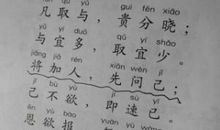 qǔ yǔ guì fēn xiǎo
凡取与，贵分晓；
yǔ yí duō qǔ yí shǎo
与宜多，取宜少。
jiāng jiā rén xiān wèn jǐ
将加人，先问己；
jǐ bú yù jí sù yǐ
己不欲，即速已。
ēn yù bào
恩欲报